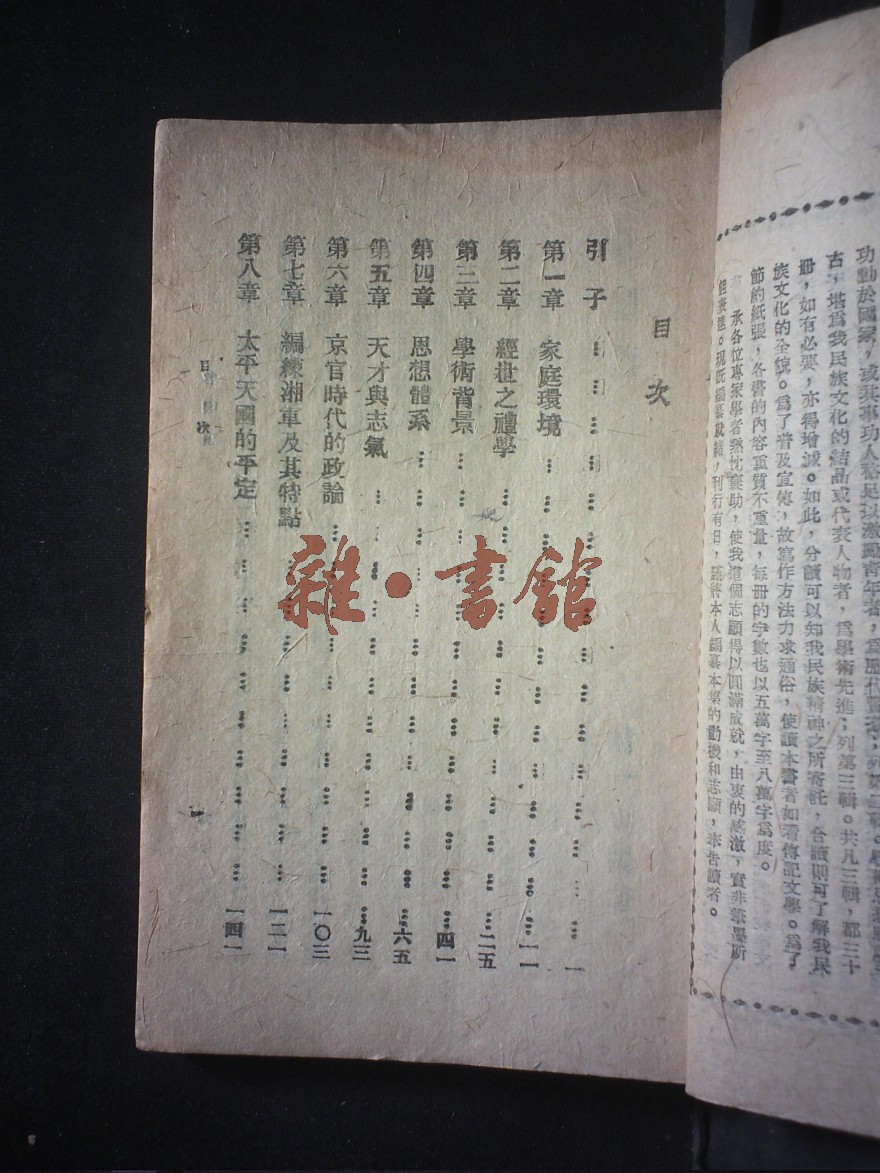 功勳於國家，或其事功人格足以激勵青年者，爲歷代賢豪；列第二輯。
古，堪爲我民族文化的結晶或代表人物者，爲學術先進；列第三輯。共凡三輯，都三十
册，如有必要，亦得增減。如此，分讀可以知我民族精神之所寄託，合讀則可了解我民
族文化的全貌。爲了普及宣傳，故寫作方法力求通俗，使讀本書者如看傳記文學。爲了
節約紙張，各書的內容重質不重量，每册的字數也以五萬字至八萬字爲度。
承各位專家學者熱忱襄助，使我這個志願得以圓滿成就，由衷的感激，實非筆墨所
能表達。現既編纂就緒，刊行有日，謹將本人編纂本集的動機和志願，來告讀者。
目次
引子 一
第一章 家庭環境 一一
第二章 經世之禮學 二五
第三章 學術背景 四一
第四章 思想體系 六五
第五章 天才與志氣 九三
第六章 京官時代的政論 一〇三
第七章 編練湘軍及其特點 一二一
第八章 太平天國的平定 一四一
目次
一
雜·書館